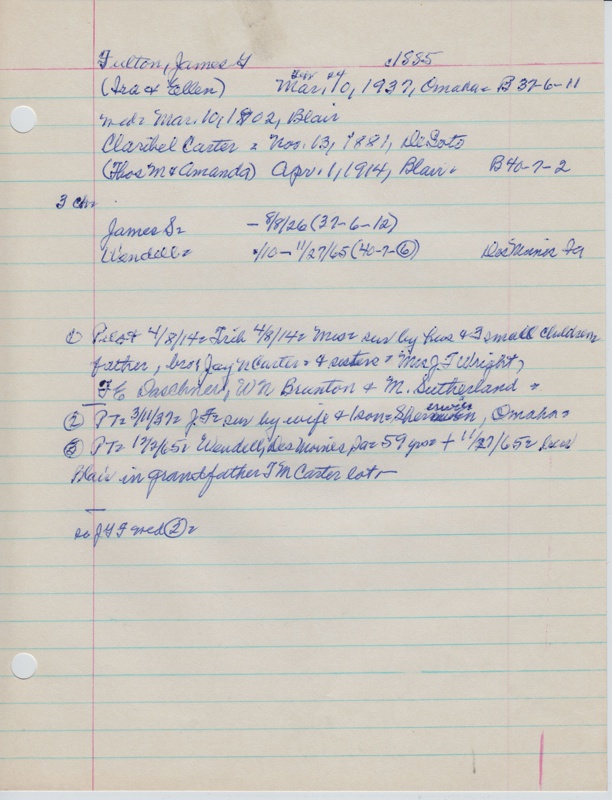 Fulton, James G c1885
(Ira & Ellen) Mar. 10, 1937, Omaha = B 37-6-11
med = Mar. 10, 1902, Blair
Claribel Carter = Nov. 13, 1881, DeSoto
(Thos M & Amanda) Apr. 1, 1914, Blair = B40-7-2
3 chn
James S = - 8/8/26 (37-6-12)
Wendell = 1/10 - 11/27/65 (40-7-6) Des Moines Ia
① Pilot 4/8/14 = Trib 4/8/14 = Mrs = sur by hus & 3 small children
father, bro, Jay N Carter = & sisters = Mrs J T Wright,
F E Daschner, W N Brunton & M. Sutherland =
② PT = 3/11/37 = J F = sur by wife & 1 son = Sherwin, Omaha =
③ PT = 12/2/65 = Wendell, Des Moines, Ia = 59 yrs = + 11/27/65 =
Blair in grandfather T M Carter lot =
J G F med ② =